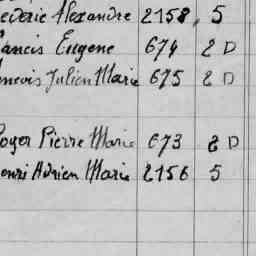 ederic Alexandre 2158 5
rancis Eugene 674 2 D
enevis Julien Marie 675 2 D
oyer Pierre Marie 673 2 D
enri Adrien Marie 2156 5